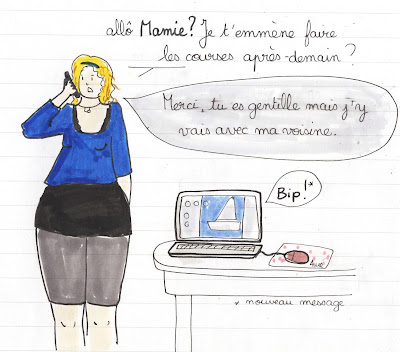 allô Mamie? Je t'emmène faire
les courses après-demain?
Merci, tu es gentille mais j'y
vais avec ma voisine.
Bip!*
* nouveau message